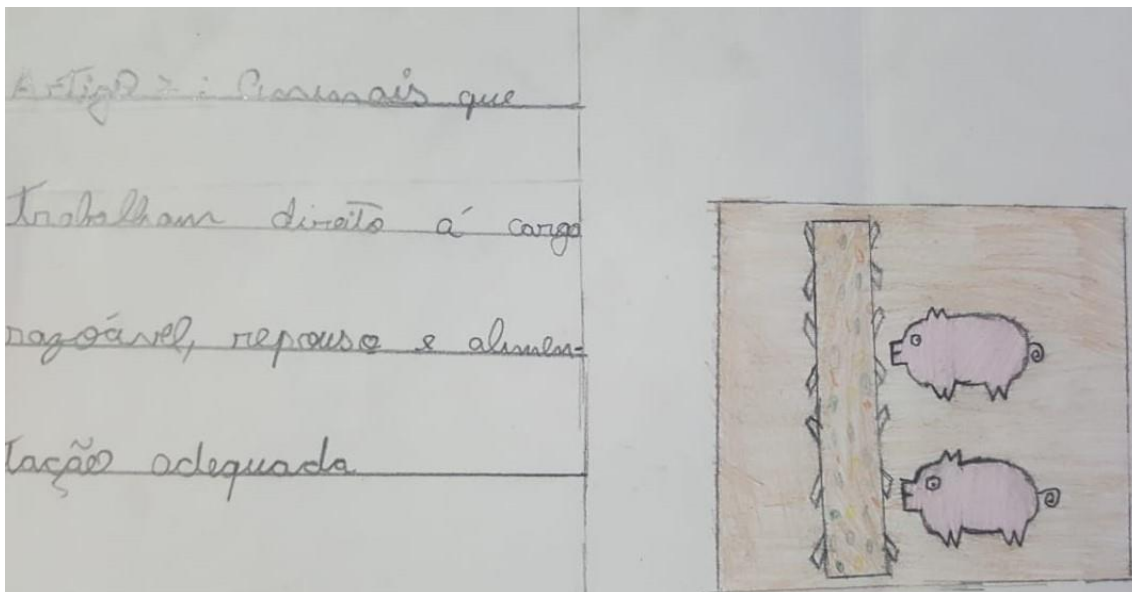 Artigo 7: Animais que
trabalham direito á carga
razoável, repouso e alimen-
tação adequada